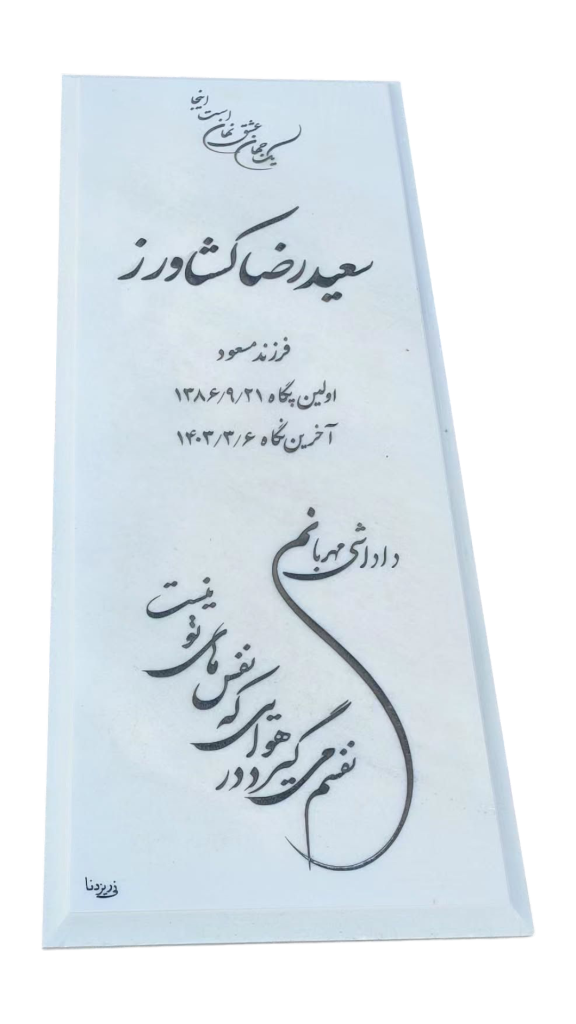 یک جهان عشق نهان است اینجا
سعیدرضا کشاورز
فرزند مسعود
اولین پگاه ۱۳۸۶/۹/۲۱
آخرین نگاه ۱۴۰۳/۳/۶
داداشی مهربانم
نفسم می گیرد در
هوایی که
نفس های تو
نیست
نی ریز دنا